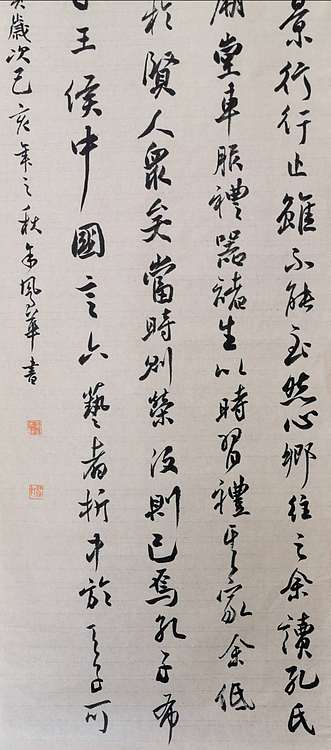 景行行止雖不能至然心鄉往之余讀孔氏
廟堂車服禮器諸生以時習禮其家余低
於賢人衆矣當時則榮沒則已焉孔子布
王侯中國言六藝者折中於夫子可
歲次己亥年之秋風華書